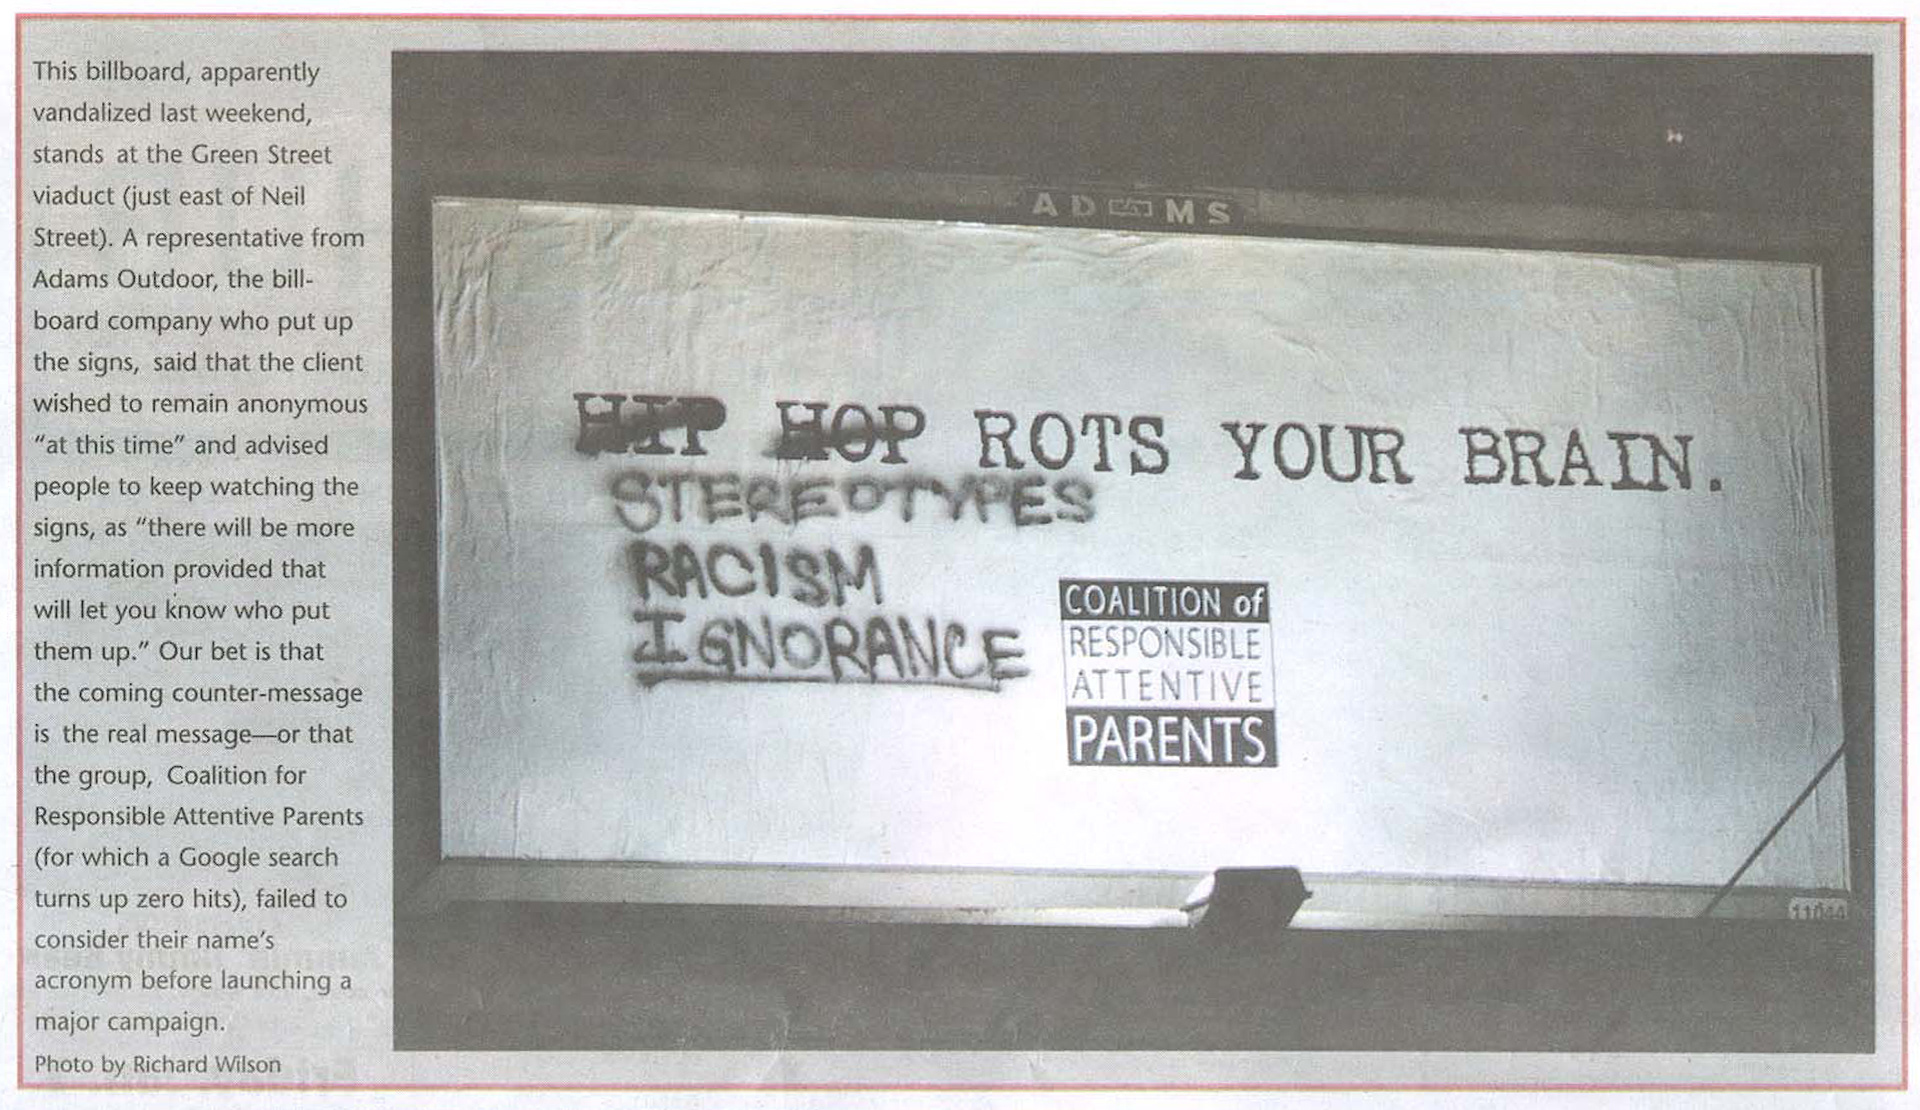 This billboard, apparently
vandalized last weekend,
stands at the Green Street
viaduct (just east of Neil
Street). A representative from
Adams Outdoor, the bill-
board company who put up
the signs, said that the client
wished to remain anonymous
“at this time” and advised
people to keep watching the
signs, as “there will be more
information provided that
will let you know who put
them up.” Our bet is that
the coming counter-message
is the real message—or that
the group, Coalition for
Responsible Attentive Parents
(for which a Google search
turns up zero hits), failed to
consider their name’s
acronym before launching a
major campaign.
Photo by Richard Wilson
ADAMS
HIP HOP ROTS YOUR BRAIN.
STEREOTYPES
RACISM
IGNORANCE
COALITION of
RESPONSIBLE
ATTENTIVE
PARENTS
11044